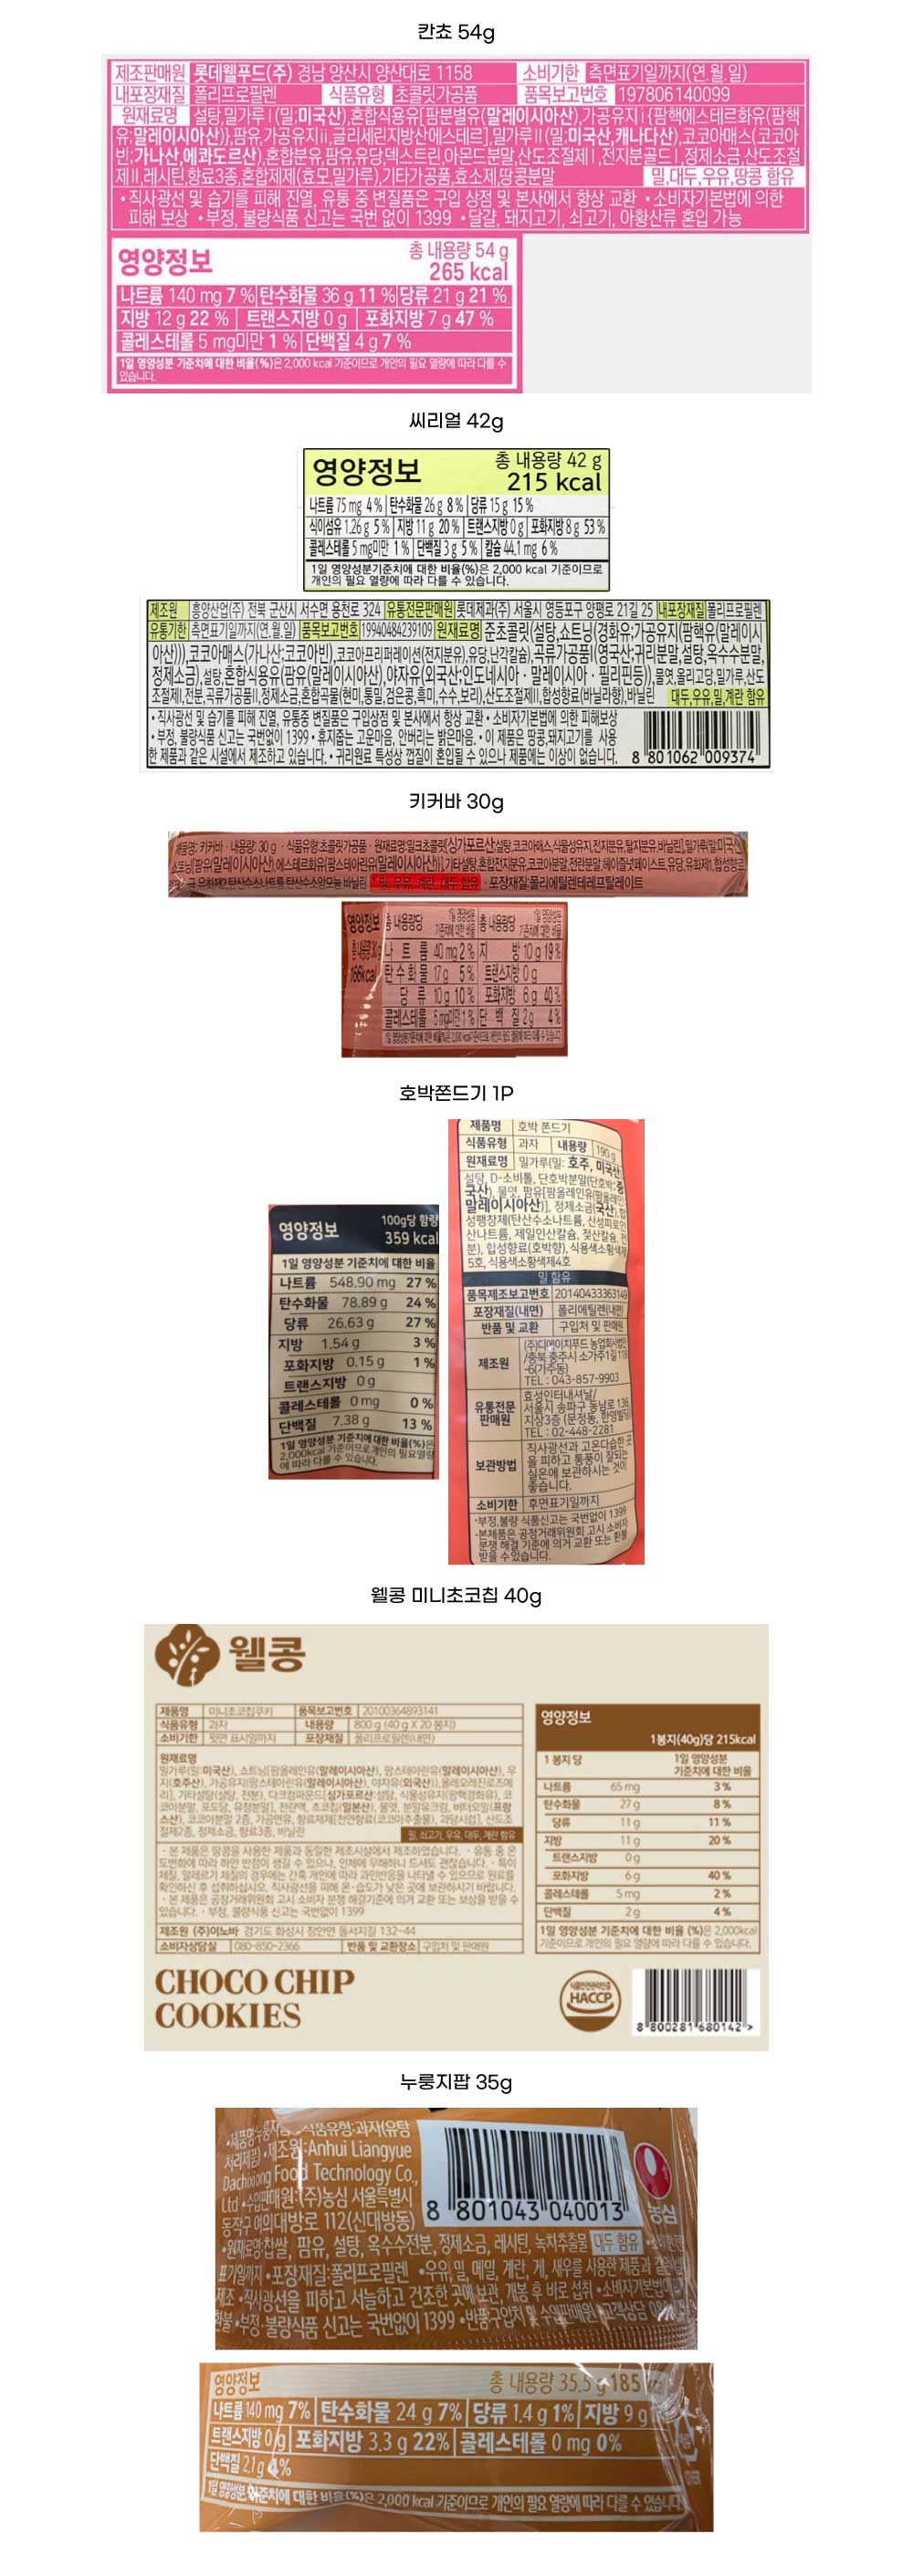 칸쵸 54g
제조판매원 롯데웰푸드(주) 경남 양산시 양산대로 1158 소비기한 측면표기일까지(연.월.일)
내포장재질 폴리프로필렌 식품유형 초콜릿가공품 품목보고번호 197806140099
원재료명 설탕,밀가루Ⅰ(밀:미국산),혼합식용유[팜분별유(말레이시아산),가공유지ⅰ{팜핵에스테르화유(팜핵
유:말레이시아산)},팜유,가공유지ⅱ,글리세린지방산에스테르],밀가루Ⅱ(밀:미국산,캐나다산),코코아매스(코코아
빈:가나산,에콰도르산),혼합분유,팜유,유당,덱스트린,아몬드분말,산도조절제Ⅰ,전지분골드Ⅰ,정제소금,산도조절
제Ⅱ,레시틴,향료3종,혼합제제(효모,밀가루),기타가공품,효소제,땅콩분말 밀,대두,우유,땅콩 함유
•직사광선 및 습기를 피해 진열, 유통 중 변질품은 구입 상점 및 본사에서 항상 교환 •소비자기본법에 의한
피해 보상 •부정, 불량식품 신고는 국번 없이 1399 •달걀, 돼지고기, 쇠고기, 아황산류 혼입 가능
영양정보 총 내용량 54 g
265 kcal
나트륨 140 mg 7 % 탄수화물 36 g 11 % 당류 21 g 21 %
지방 12 g 22 % 트랜스지방 0 g 포화지방 7 g 47 %
콜레스테롤 5 mg미만 1 % 단백질 4 g 7 %
1일 영양성분 기준치에 대한 비율(%)은 2,000 kcal 기준이므로 개인의 필요 열량에 따라 다를 수
있습니다.
씨리얼 42g
영양정보 총 내용량 42 g
215 kcal
나트륨 75 mg 4 % 탄수화물 26 g 8 % 당류 15 g 15 %
식이섬유 1.26 g 5 % 지방 11 g 20 % 트랜스지방 0 g 포화지방 8 g 53 %
콜레스테롤 5 mg미만 1 % 단백질 3 g 5 % 칼슘 44.1 mg 6 %
1일 영양성분기준치에 대한 비율(%)은 2,000 kcal 기준이므로
개인의 필요 열량에 따라 다를 수 있습니다.
제조원 흥양산업(주) 전북 군산시 서수면 용천로 324 유통전문판매원 롯데제과(주) 서울시 영등포구 양평로 21길 25 내포장재질 폴리프로필렌
유통기한 측면표기일까지(연.월.일) 품목보고번호 19940484239109 원재료명 준초콜릿(설탕,쇼트닝(경화유;가공유지(팜핵유(말레이시
아산))),코코아매스(가나산;코코아빈),코코아프리퍼레이션(전지분유),유당,난각칼슘),곡류가공품Ⅰ(영국산;귀리분말,설탕,옥수수분말,
정제소금),설탕,혼합식용유(팜유(말레이시아산),야자유(외국산;인도네시아·말레이시아·필리핀등)),물엿,올리고당,밀가루,산도
조절제Ⅰ,전분,곡류가공품Ⅱ,정제소금,혼합곡물(현미,통밀,검은콩,흑미,수수,보리),산도조절제Ⅱ,합성향료(바닐라향),바닐린 대두,우유,밀,계란 함유
•직사광선 및 습기를 피해 진열, 유통중 변질품은 구입상점 및 본사에서 항상 교환•소비자기본법에 의한 피해보상
•부정, 불량식품 신고는 국번없이 1399•휴지줍는 고운마음, 안버리는 밝은마음.•이 제품은 땅콩,돼지고기를 사용
한 제품과 같은 시설에서 제조하고 있습니다.•귀리원료 특성상 껍질이 혼입될 수 있으나 제품에는 이상이 없습니다. 8 801062 009374
키커바 30g
제품명: 키커바 · 내용량: 30 g · 식품유형:초콜릿가공품 · 원재료명:밀크초콜릿[싱가포르산;설탕,코코아매스,식물성유지,전지분유,탈지분유,바닐린],밀가루(밀:미국산)
쇼트닝[팜유(말레이시아산),에스테르화유(팜스테아린유(말레이시아산))],기타설탕,혼합전지분유,코코아분말,전란분말,헤이즐넛페이스트,유당,유화제,합성향료
밀, 우유, 계란, 대두 함유 · 포장재질:폴리에틸렌테레프탈레이트
영양정보 총 내용량당 1일 영양성분 기준치에 대한 비율 총 내용량당 1일 영양성분 기준치에 대한 비율
총 내용량 30g 나트륨 40 mg 2 % 지방 10 g 19 %
166kcal 탄수화물 17g 5% 트랜스지방 0 g
당류 10g 10% 포화지방 6g 40%
콜레스테롤 5mg미만 1% 단백질 2g 4%
1일 영양성분 기준치에 대한 비율(%)은 2,000 kcal 기준이므로 개인의 필요 열량에 따라 다를 수 있습니다.
호박쫀드기 1P
영양정보 100g당 함량
359 kcal
1일 영양성분 기준치에 대한 비율
나트륨 548.90 mg 27 %
탄수화물 78.89 g 24 %
당류 26.63 g 27 %
지방 1.54 g 3 %
포화지방 0.15 g 1 %
트랜스지방 0 g
콜레스테롤 0 mg 0 %
단백질 7.38 g 13 %
1일 영양성분 기준치에 대한 비율(%)은
2,000kcal 기준이므로 개인의 필요열량
에 따라 다를 수 있습니다.
제품명 호박 쫀드기
식품유형 과자 내용량 190 g
원재료명 밀가루(밀: 호주, 미국산)
설탕, D-소비톨, 단호박분말(단호박:중
국산), 물엿, 팜유[팜올레인유(팜올레인:
말레이시아산)], 정제소금(국산), 합
성팽창제(탄산수소나트륨, 산성피로인
산나트륨, 제일인산칼슘, 젖산칼슘, 전
분), 합성향료(호박향), 식용색소황색제
5호, 식용색소황색제4호
밀 함유
품목제조보고번호 20140433363149
포장재질(내면) 폴리에틸렌(내면)
반품 및 교환 구입처 및 판매원
제조원 (주)디에이치푸드 농업회사법인
/충북 충주시 소가주1길 118
-6(가주동)
TEL : 043-857-9903
유통전문판매원 효성인터내셔날/
서울시 송파구 동남로 136,
지상3층 (문정동, 한영빌딩)
TEL : 02-448-2281
보관방법 직사광선과 고온다습한 곳
을 피하고 통풍이 잘되는
실온에 보관하시는 것이
좋습니다.
소비기한 후면표기일까지
·부정,불량 식품신고는 국번없이 1399
·본제품은 공정거래위원회 고시 소비자
분쟁 해결 기준에 의거 교환 또는 환불
받을 수 있습니다.
웰콩 미니초코칩 40g
웰콩
제품명 미니초코칩쿠키 품목보고번호 20100364893141
식품유형 과자 내용량 800 g (40 g X 20 봉지)
소비기한 뒷면 표시일까지 포장재질 폴리프로필렌(내면)
원재료명
밀가루(밀:미국산), 쇼트닝[팜올레인유(말레이시아산), 팜스테아린유(말레이시아산), 우
지(호주산), 가공유지(팜스테아린유(말레이시아산), 야자유(외국산)),올레오레진로즈메
리], 기타설탕(설탕, 전분), 다크컴파운드[싱가포르산:설탕, 식물성유지(팜핵경화유), 코
코아분말, 포도당, 유청분말], 전란액, 초코칩(일본산), 물엿, 분말유크림, 버터오일(프랑
스산), 코코아분말 2종, 가공연유, 향료제제[천연향료(코코아추출물), 과당시럽], 산도조
절제2종, 정제소금, 향료3종, 바닐린 밀, 쇠고기, 우유, 대두, 계란 함유
· 본 제품은 땅콩을 사용한 제품과 동일한 제조시설에서 제조하였습니다. · 유통 중 온
도변화에 따라 하얀 반점이 생길 수 있으나, 인체에 무해하니 드셔도 괜찮습니다. · 특이
체질, 알레르기 체질의 경우에는 간혹 개인에 따라 과민반응을 나타낼 수 있으므로 원료를
확인하신 후 섭취하십시오. 직사광선을 피해 온·습도가 낮은 곳에 보관하시기 바랍니다.
· 본 제품은 공정거래위원회 고시 소비자 분쟁 해결기준에 의거 교환 또는 보상을 받을 수
있습니다. · 부정, 불량식품 신고는 국번없이 1399
제조원 (주)이노바 경기도 화성시 장안면 돌서지길 132-44
소비자상담실 080-850-2366 반품 및 교환장소 구입처 및 판매원
영양정보
1봉지(40g)당 215kcal
1 봉지 당 1일 영양성분 기준치에 대한 비율
나트륨 65 mg 3 %
탄수화물 27 g 8 %
당류 11 g 11 %
지방 11 g 20 %
트랜스지방 0 g
포화지방 6 g 40 %
콜레스테롤 5 mg 2 %
단백질 2 g 4 %
1일 영양성분 기준치에 대한 비율 (%)은 2,000kcal
기준이므로 개인의 필요 열량에 따라 다를 수 있습니다.
CHOCO CHIP
COOKIES
HACCP
8 800281 680142 >
누룽지팝 35g
식품유형:과자(유탕
처리제품) •제조원:Anhui Liangyue
Dachixiong Food Technology Co.,
Ltd •수입판매원:(주)농심 서울특별시
동작구 여의대방로 112(신대방동) 8 801043 040013 농심
•원재료명:찹쌀, 팜유, 설탕, 옥수수전분, 정제소금, 레시틴, 녹차추출물 대두 함유
표기일까지 •포장재질:폴리프로필렌 •우유, 밀, 메밀, 계란, 게, 새우를 사용한 제품과 같은
제조 •직사광선을 피하고 서늘하고 건조한 곳에 보관, 개봉 후 바로 섭취 •소비자기본법에
환불 •부정·불량식품 신고는 국번없이 1399 •반품:구입처 및 수입판매원 •고객상담
영양정보 총 내용량 35.5 g 185
나트륨 140 mg 7% 탄수화물 24 g 7% 당류 1.4 g 1% 지방 9 g
트랜스지방 0 g 포화지방 3.3 g 22% 콜레스테롤 0 mg 0%
단백질 2.1 g 4%
1일 영양성분 기준치에 대한 비율(%)은 2,000 kcal 기준이므로 개인의 필요 열량에 따라 다를 수 있습니다